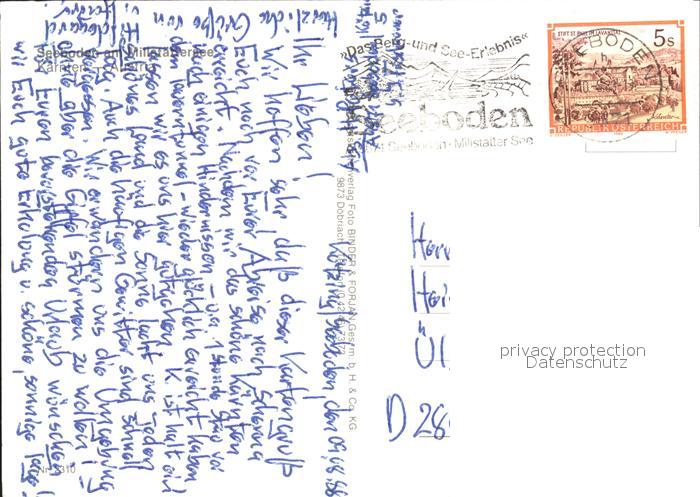 Seeboden am Millstättersee
Kärnten Austria
»Das Berg-und See-Erlebnis«
Seeboden
Seeboden · Millstätter See
STIFT ST. PAUL IM LAVANTTAL
5s
REPUBLIK ÖSTERREICH
SEEBODEN
Seeboden, den 09.08.88
Ihr Lieben!
Wir hoffen sehr, daß dieser Kartengruß
Euch noch vor Eurer Abreise nach
erreicht. Nachdem wir das schöne Kärnten
nach einigen Hindernissen - u.a. 1 Stunde Stau vor
dem Tauerntunnel - wieder glücklich erreicht haben
lassen wir es uns hier gutgehen. K. ist halt ein
schönes Land und die Sonne lacht uns jeden
Tag. Auch die häufigen Gewitter sind schnell
vergessen. Wir erwandern uns die Umgebung
ohne aber die Gipfel stürmen zu wollen!
Für Euren bevorstehenden Urlaub wünschen
wir Euch gute Erholung u. schöne, sonnige Tage!
Herzliche Grüße von
verlag Foto BINDER & FORJAN Ges.m.b.H. & Co. KG
9873 Döbriach
Herr
Hei
Ül
D 28
privacy protection
Datenschutz